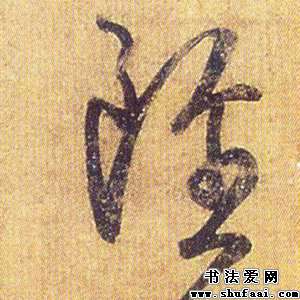 險
书法爱网
www.shufaai.com